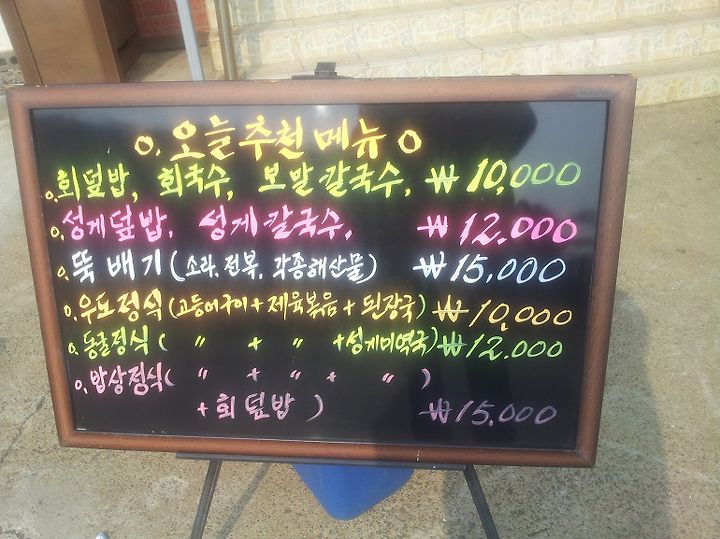 o. 오늘 추천 메뉴 o
o. 회덮밥, 회국수, 보말칼국수. ₩ 10,000
o. 성게덮밥, 성게칼국수. ₩ 12,000
o. 뚝배기 (소라, 전복, 각종해산물) ₩ 15,000
o. 우도정식 (고등어구이 + 제육볶음 + 된장국) ₩ 10,000
o. 동굴정식 ( 〃 + 〃 + 성게미역국) ₩ 12.000
o. 밥상정식 ( 〃 + 〃 + 〃 )
+ 회덮밥 ) ₩ 15,000